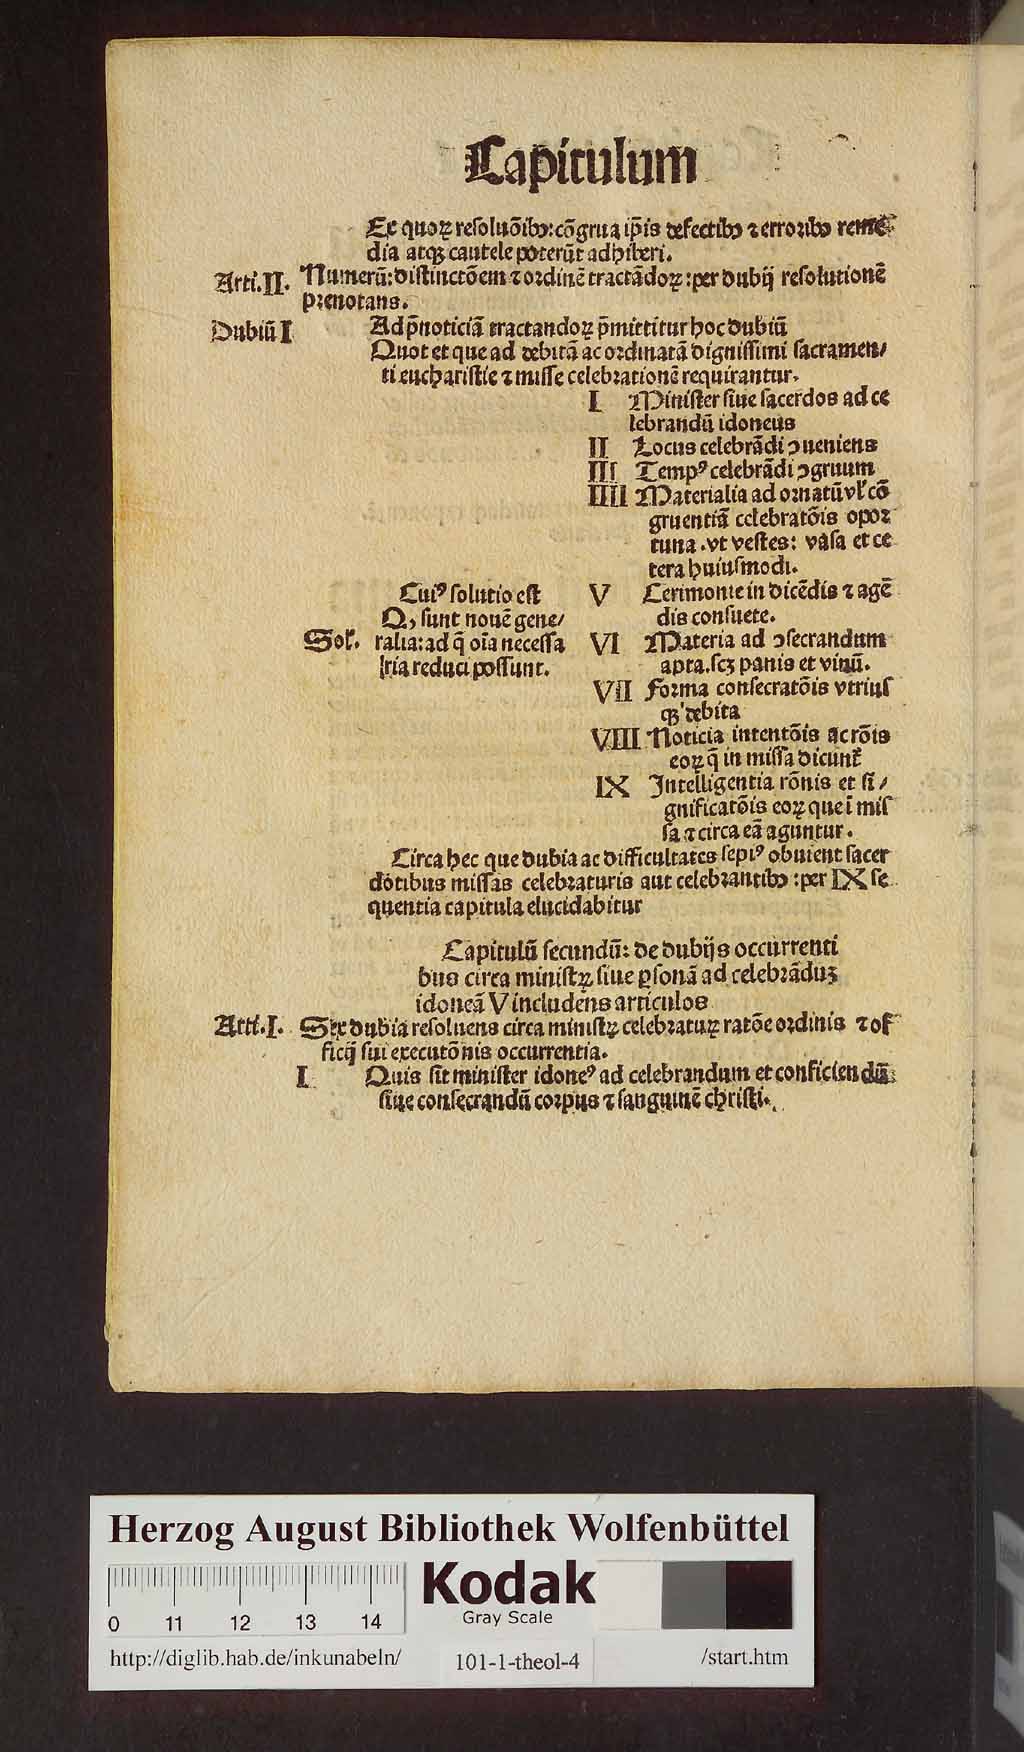 Capitulum
Ex quoꝝ resoluōibꝰ: cōgrua ip̄is defectibꝰ ⁊ erroribꝰ reme
dia atqꝫ cautele poterūt adhiberi.
Arti. II. Numerū: distinctōem ⁊ ordinē tractādoꝝ: per dubij resolutionē
prenotans.
Dubiū I Ad p̄noticiā tractandoꝝ p̄mittitur hoc dubiū
Quot et que ad debitā ac ordinatā dignissimi sacramen/
ti eucharistie ⁊ misse celebrationē requirantur.
I Minister siue sacerdos ad ce
lebrandū idoneus
II Locus celebrādi ↄueniens
III Tempꝰ celebrādi ↄgruum
IIII Materialia ad ornatū vl̕ cō
gruentiā celebratōis opor
tuna. vt vestes: vasa et ce
tera huiusmodi.
Cuiꝰ solutio est
Q, sunt nouē gene/
Sol̕. ralia: ad q̄ oīa necessa
ria reduci possunt.
V Cerimonie in dicēdis ⁊ agē
dis consuete.
VI Materia ad ↄsecrandum
apta. scꝫ panis et vinū.
VII Forma consecratōis vtrius
qꝫ debita
VIII Noticia intentōis ac rōis
eoꝝ q̄ in missa dicunt̕
IX Intelligentia rōnis et si/
gnificatōis eoꝝ que ī mis
sa ⁊ circa eā aguntur.
Circa hec que dubia ac difficultates sepiꝰ obuient sacer
dotibus missas celebraturis aut celebrantibꝰ: per IX se
quentia capitula elucidabitur
Capitulū secundū: de dubijs occurrenti
bus circa ministꝝ siue ꝑsonā ad celebrāduꝫ
idoneā V includens articulos
Arti. I. Sex dubia resoluens circa ministꝝ celebratuꝝ ratōe ordinis ⁊ of
ficij sui executōnis occurrentia.
I Quis sit minister idoneꝰ ad celebrandum et conficiendū
siue consecrandū corpus ⁊ sanguinē christi.
Herzog August Bibliothek Wolfenbüttel
Kodak
Gray Scale
0 11 12 13 14
http://diglib.hab.de/inkunabeln/ 101-1-theol-4 /start.htm